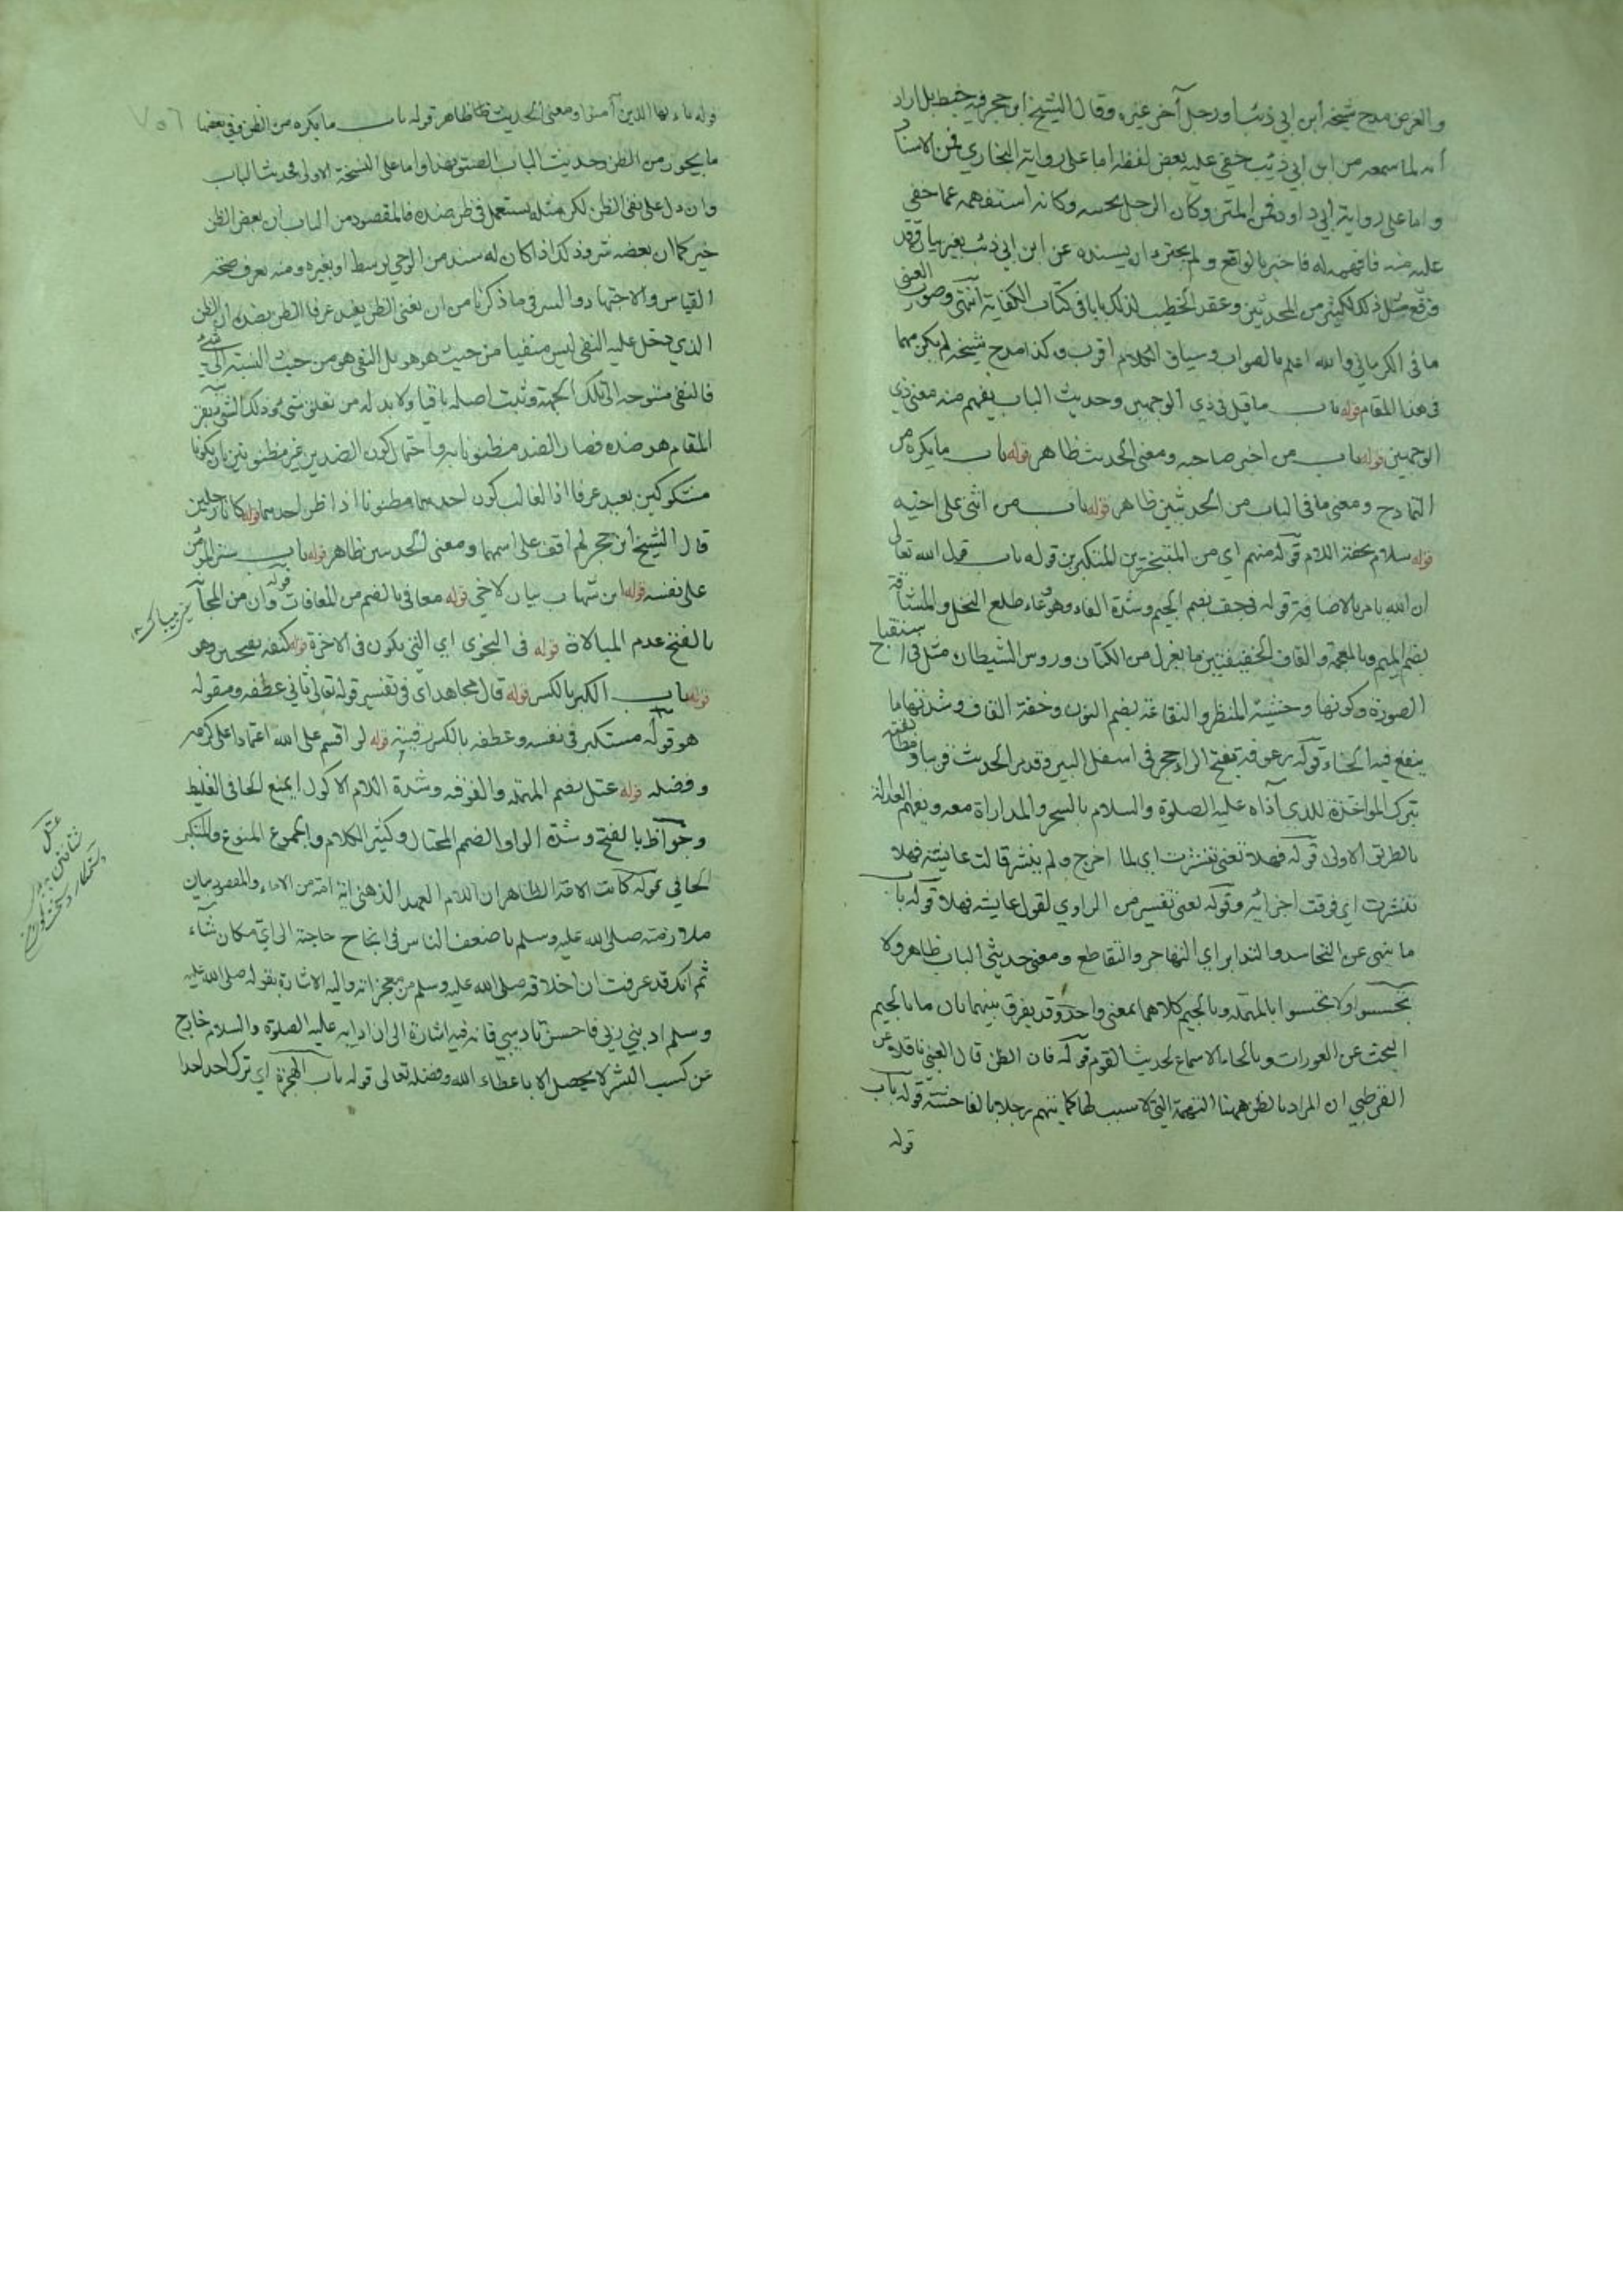 والغرض مدح شيخه ابن ابي ذئب او رجل آخر غيره وقال الشيخ ابن حجر فيه خبط بل اراد
انه لما سمعه من ابن ابي ذئب خفي عليه بعض لفظه اما على رواية البخاري فمن الاسناد
و اما على رواية ابي داود فمن المتن وكان الرجل بجنبه وكانه استفهمه عما خفي
عليه منه فافهمه له فاخبر بالواقع ولم يجتزء ان يسنده عن ابن ابي ذئب بغير بيان وقد
وقع مثل ذلك لكثير من المحدثين وعقد الخطيب لذلك بابا في كتاب الكفاية انتهى وصوب العيني
ما في الكرماني والله اعلم بالصواب وسياق الكلام اقرب وكذا مدح شيخه لم يكن مهما
في هذا المقام قوله باب ما قيل في ذي الوجهين وحديث الباب يفهم منه معنى ذي
الوجهين قوله باب من اخبر صاحبه ومعنى الحديث ظاهر قوله باب ما يكره من
التمادح ومعنى ما في الباب من الحديثين ظاهر قوله باب من اثنى على اخيه
قوله سلام بخفة اللام قوله منهم اي من المتبخترين المتكبرين قوله باب قول الله تعالى
ان الله يامر بالاضافة قوله في جف بضم الجيم وشدة الفاء وهو وعاء طلع النخل والمشاقة
بضم الميم وبالمعجمة والقاف الخفيفتين ما يغزل من الكتان و روس الشيطان مثل في استقباح
الصورة وكونها وحشية المنظر والنقاعة بضم النون وخفة القاف وشدتها ما
ينقع فيه الحناء قوله رعوفة بفتح الراء حجر في اسفل البير وقد مر الحديث قريبا و
بترك المواخذة للذي آذاه عليه الصلوة والسلام بالسحر والمداراة معه ويفهم العدالة
بالطريق الاولى قوله فهلا تعني تنشرت اي لما اخرج ولم ينشر قالت عايشة فهلا
تنشرت اي فرقت اجزائه وقوله تعني تفسير من الراوي لقول عايشة فهلا قوله باب
ما ينهى عن التحاسد والتدابر اي التهاجر والتقاطع ومعنى حديثي الباب ظاهر ولا
تحسسوا ولا تجسسوا بالمهملة وبالجيم كلاهما بمعنى واحد وقد يفرق بينهما بان ما بالجيم
البحث عن العورات وبالحاء الاستماع لحديث القوم قوله فان الظن قال العيني ناقلا عن
القرطبي ان المراد بالظن ههنا التهمة التي لا سبب لها كما يتهم رجلا بالفاحشة قوله باب
قوله
٧٥٦
قوله يا ايها الذين آمنوا ومعنى الحديث ظاهر قوله باب ما يكره من الظن وفي بعضها
ما يجوز من الظن وحديث الباب الصق بهذا واما على النسخة الاولى فحديث الباب
وان دل على نفي الظن لكن مثله يستعمل في ظن ضده فالمقصود من الباب ان بعض الظن
خير كما ان بعضه شر وذلك اذا كان له سند من الوحي بوسط او بغيره ومنه يعرف صحة
القياس والاجتهاد والسر في ما ذكرنا من ان نفي الظن يفيد عرفا الظن بضده ان الظن
الذي دخل عليه النفي ليس منفيا من حيث هو هو بل النفي هو من حيث النسبة الى شيء
فالنفي متوجه الى تلك الجهة وثبت اصله باقيا ولا بد له من تعلق شيء وذلك الشيء بقرينة
المقام هو ضده فصار الضد مظنونا به واحتمال كون الضدين غير مظنونين بان يكونا
مشكوكين بعيد عرفا اذ الغالب كون احدهما مظنونا اذا ظن احدهما قوله كانا رجلين
قال الشيخ ابن حجر لم اقف على اسمهما ومعنى الحديثين ظاهر قوله باب ستر المؤمن
على نفسه قوله ابن شهاب بيان لاخي قوله معافى بالضم من المعافات قوله وان من المجانة
بالفتح عدم المبالاة قوله في النجوى اي التي يكون في الاخرة قوله كنفه بفتحتين وهو
قوله باب الكبر بالكسر قوله قال مجاهد اي في تفسير قوله تعالى ثاني عطفه ومقوله
هو قوله مستكبر في نفسه وعطفه بالكسر رقبته قوله لو اقسم على الله اعتمادا على كرمه
وفضله قوله عتل بضم المهملة والفوقية وشدة اللام الاكول المنيع الجافي الغليظ
وجواظ بالفتح وشدة الواو الضخم المختال وكثير الكلام والجموع المنوع والمتكبر
الجافي قوله كانت الامة الظاهر ان اللام للعهد الذهني اية امة من الاماء والمقصود بيان
ملازمته صلى الله عليه وسلم باضعف الناس في انجاح حاجته الى اي مكان شاء
ثم انك قد عرفت ان اخلاقه صلى الله عليه وسلم من معجزاته واليه الاشارة بقوله صلى الله عليه
وسلم ادبني ربي فاحسن تاديبي فانه فيه اشارة الى ان ادابه عليه الصلوة والسلام خارج
عن كسب البشر لا يحصل الا باعطاء الله وفضله تعالى قوله باب الهجرة اي ترك احد احدا
عتل